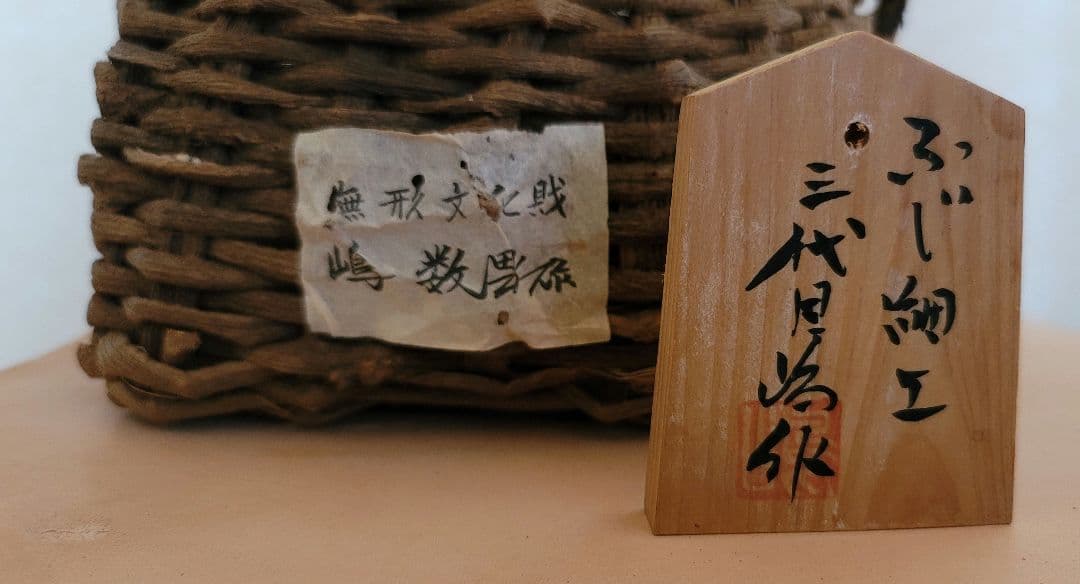 無形文化財
嶋 数男作
ふじ細工
三代目嶋作